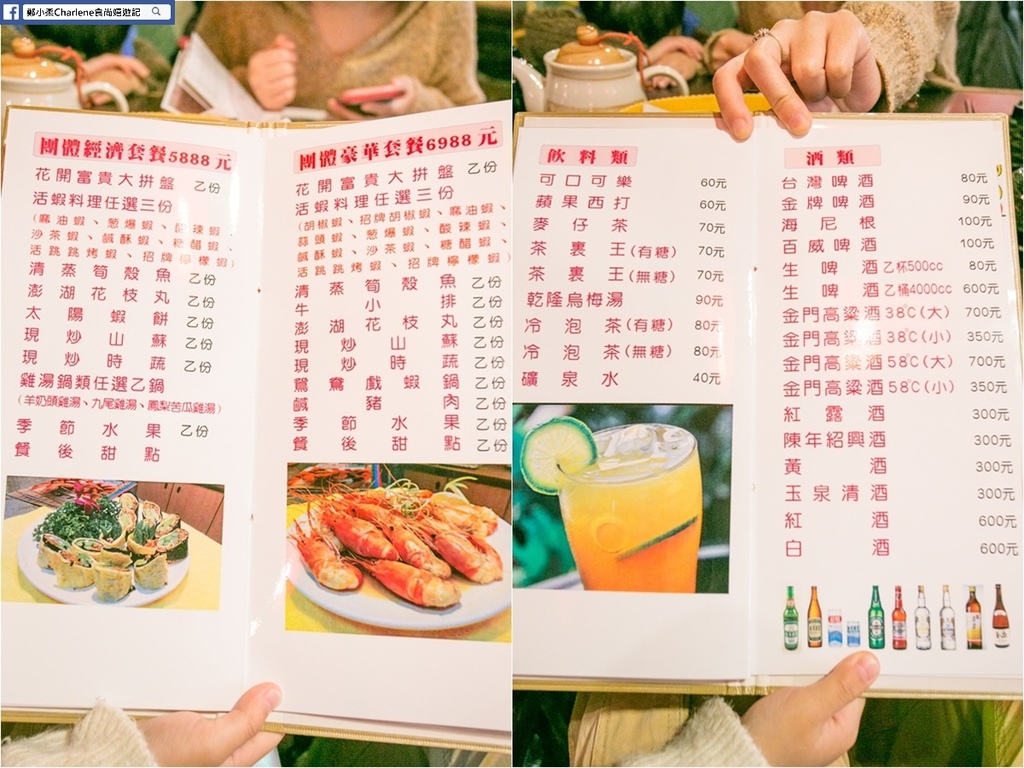 鄭小柔Charlene食尚嬉遊記
團體經濟套餐5888元
花開富貴大拼盤 乙份
活蝦料理任選三份
(麻油蝦、葱爆蝦、酸辣蝦、
沙茶蝦、鹹酥蝦、糖醋蝦、
活跳跳烤蝦、招牌檸檬蝦)
清蒸筍殼魚 乙份
澎湖花枝丸 乙份
太陽蝦餅 乙份
現炒山蘇 乙份
現炒時蔬 乙份
雞湯鍋類任選乙鍋
(羊奶頭雞湯、九尾雞湯、鳳梨苦瓜雞湯)
季節水果 乙份
餐後甜點
團體豪華套餐6988元
花開富貴大拼盤 乙份
活蝦料理任選三份
(胡椒蝦、招牌胡椒蝦、麻油蝦、
蒜頭蝦、葱爆蝦、酸辣蝦、
鹹酥蝦、沙茶蝦、糖醋蝦、
活跳跳烤蝦、招牌檸檬蝦)
清蒸筍殼魚 乙份
牛小排 乙份
澎湖花枝丸 乙份
現炒山蘇 乙份
現炒時蔬 乙份
鴛鴦戲蝦鍋 乙份
鹹豬肉 乙份
季節水果 乙份
餐後甜點 乙份
飲料類
可口可樂 60元
蘋果西打 60元
麥仔茶 70元
茶裏王(有糖) 70元
茶裏王(無糖) 70元
乾隆烏梅湯 90元
冷泡茶(有糖) 80元
冷泡茶(無糖) 80元
礦泉水 40元
酒類
台灣啤酒 80元
金牌啤酒 90元
海尼根 100元
百威啤酒 100元
生啤酒乙杯500cc 80元
生啤酒乙桶4000cc 600元
金門高粱酒38℃(大) 700元
金門高粱酒38℃(小) 350元
金門高粱酒58℃(大) 700元
金門高粱酒58℃(小) 350元
紅露酒 300元
陳年紹興酒 300元
黃酒 300元
玉泉清酒 300元
紅酒 600元
白酒 600元